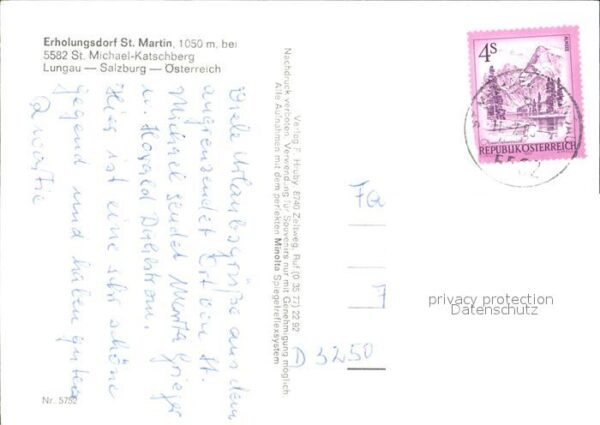 Erholungsdorf St. Martin, 1050 m, bei
5582 St. Michael-Katschberg
Lungau — Salzburg — Österreich
Viele Urlaubsgrüße aus dem
angrenzenden Ort von St.
Michael sendet Marta Grieger
u. Harald Dahlstrom.
Hier ist eine sehr schöne
Gegend und haben gutes
Verlag F. Hruby, 8740 Zeltweg, Ruf (0 35 77) 22 92
Nachdruck verboten. Verwendung für Souvenirs nur mit Genehmigung möglich
Alle Aufnahmen mit dem perfekten Minolta Spiegelreflexsystem
4S
ALMSEE
REPUBLIK ÖSTERREICH
5582
D 3250
privacy protection
Datenschutz
Nr. 5752